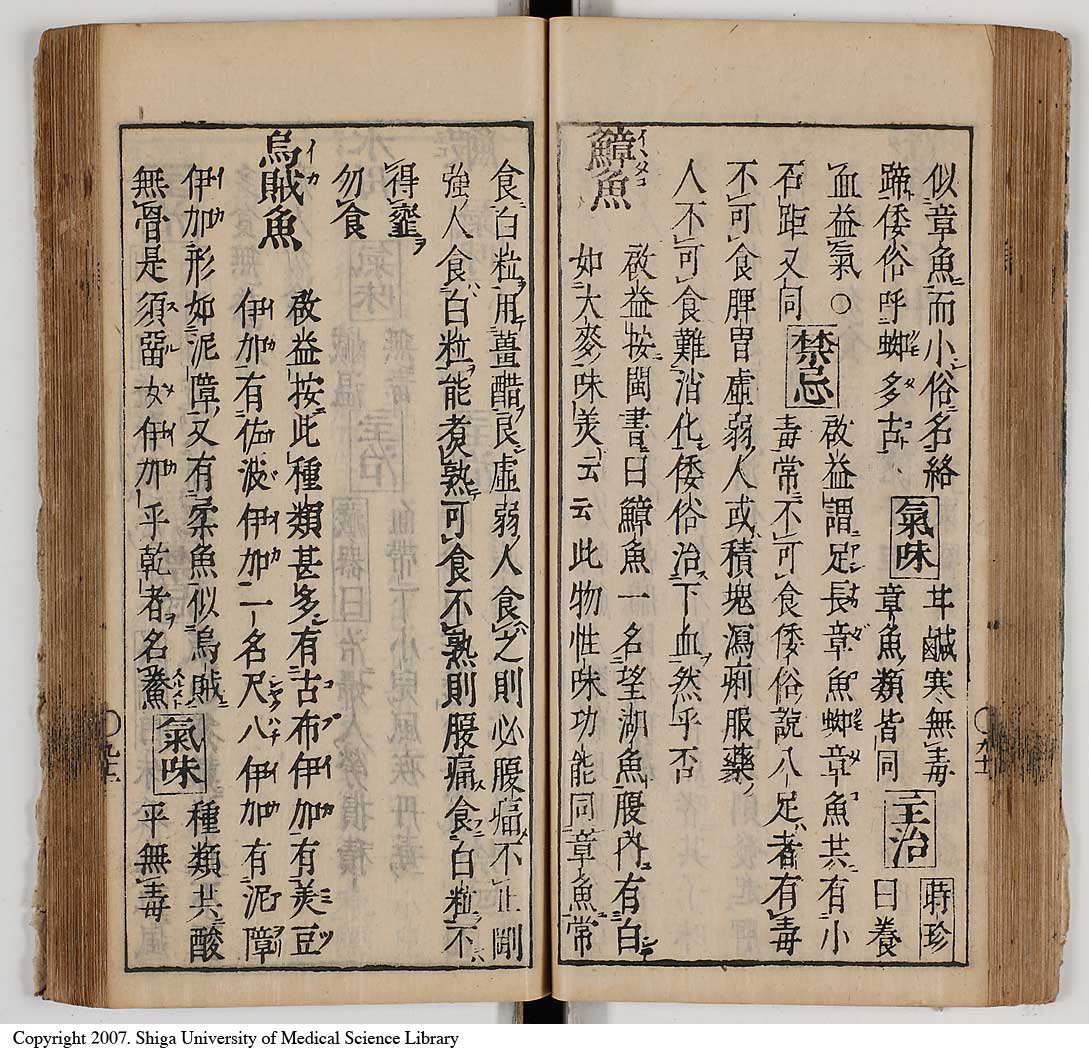 似章魚而小俗名絡
蹄倭俗呼蜘多古 氣味 甘鹹寒無毒
章魚類皆同 主治 時珍
曰養
血益氣〇
石距又同 禁忌 啟益謂足長章魚蜘章魚共有小
毒常不可食倭俗說八足者有毒
不可食脾胃虛弱人或積塊瀉痢服藥
人不可食難消化倭俗治下血然乎否
鱆魚 イヽダコ
啟益按閩書曰鱆魚一名望湖魚腹內有白
如大麥味美云云此物性味功能同章魚常
食白粒用薑醋良虛弱人食之則必腹痛不止剛
強人食白粒能煮熟可食不熟則腹痛食白粒不
得韲
勿食
烏賊魚 イカ
啟益按此種類甚多有古布伊加有美豆
伊加有佐波伊加一名尺八伊加有泥障
伊加形如泥障又有柔魚似烏賊
無骨是須畱女伊加乎乾者名鯗 氣味 種類共酸
平無毒
〇九十一
〇九十二
Copyright 2007. Shiga University of Medical Science Library